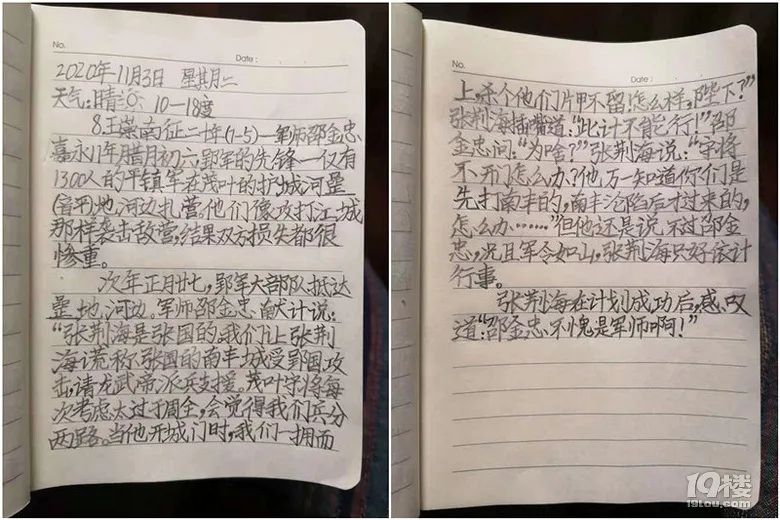 No.
Date :
2020年11月3日 星期二
天气:晴 10—18度
8.王崇南征二十年(1-5)—军师邵金忠
嘉永11年腊月初六,郢军的先锋—仅有
1300人的平镇军在茂叶的护城河罡
(音平)地河边扎营。他们像攻打江城
那样袭击敌营,结果双方损失都很
惨重。
次年正月廿七,郢军大部队抵达
罡地河边。军师邵金忠献计说:
“张荆海是张国的,我们让张荆
海谎称张国的南丰城受郢国攻
击,请龙武帝派兵支援。茂叶守将每
次考虑太过于周全,会觉得我们兵分
两路。当他开城门时,我们一拥而
No.
Date :
上,杀个他们片甲不留!怎么样,陛下?”
张荆海插嘴道:“此计不能行!”邵
金忠问:“为啥?”张荆海说:“守将
不开门怎么办?他万一知道你们是
先打南丰的,南丰沦陷后才过来的,
怎么办……”但他还是说不过邵金
忠,况且军令如山,张荆海只好依计
行事。
张荆海在计划成功后,感叹
道:“邵金忠不愧是军师啊!”
19楼
19lou.com